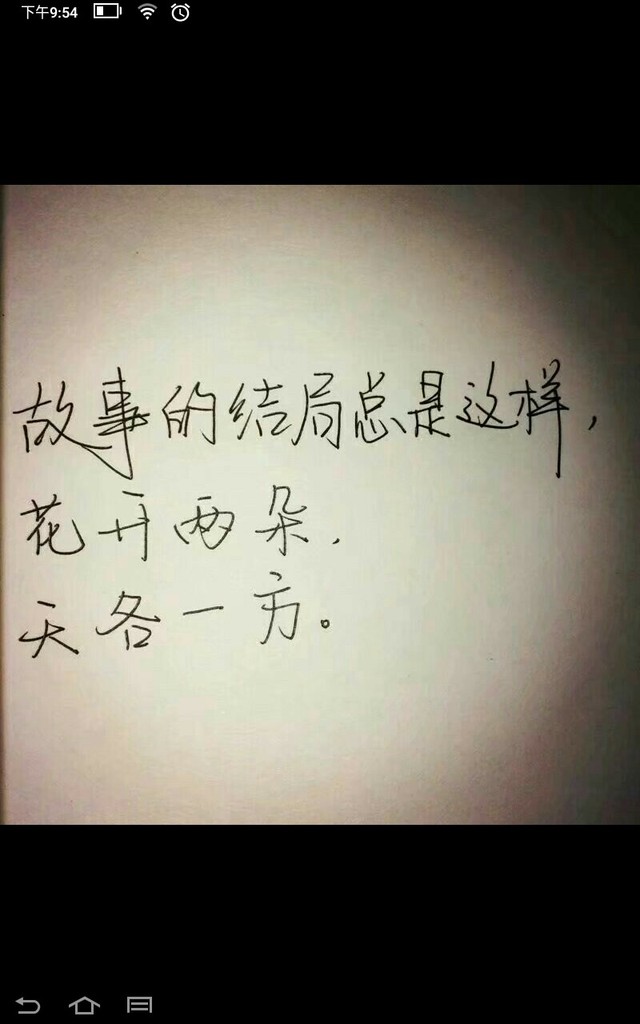 下午9:54
故事的结局总是这样，
花开两朵．
天各一方。